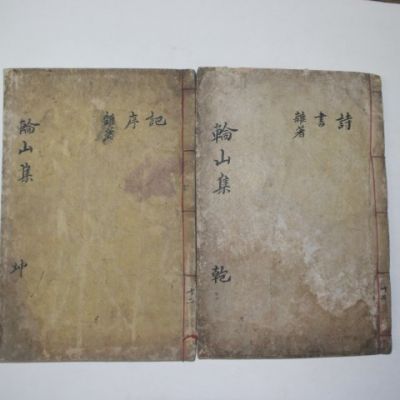 詩
書
雜著
輪山集 乾
記
序
雜著
輪山集 坤